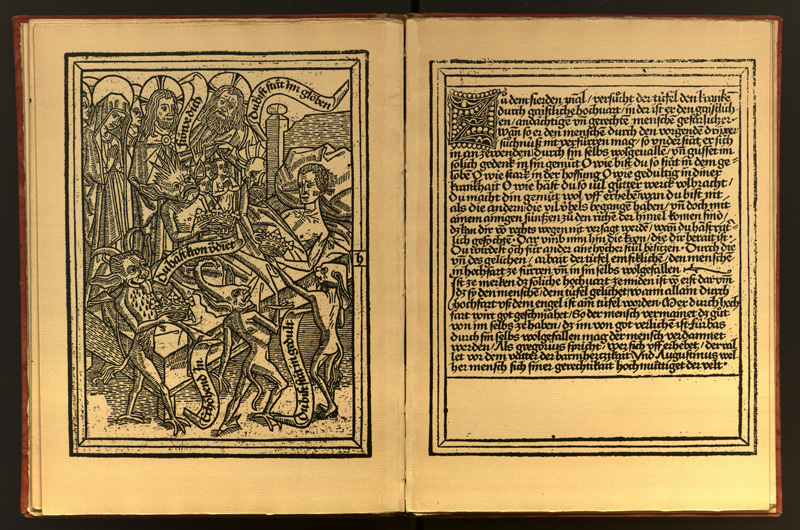 rüm dich
du bist stät im globen
Du hast kron v̄diet
Du bist stät in gedult
h
Zu dem fierden mal / versůcht der tüfel den krankē
durch gaistliche hochuart / in der ist er den gaistlich
en / andächtigē vn̄ gerechtē mensche gefarlicher·
wan so er den menschē durch den
mit verfürren mag· so vnderstat er sich
in an zewenden / durch sin selbs wolgeualle / vn̄ güsset im
solich gedenk in sin gemüt O wie bist du so stät in dem ge=
lobē O wie stark in der hoffnug O wie gedultig in diner
krankhait O wie häst du so uil gůtter werck volbracht /
Du macht din gemüt wol vff erhebē wan du bist nit
als die andern / die vil vbels begangē haben / vn̄ doch mit
ainem ainigen sünftzen zů den růhe der himel komen sind /
nit versagt werdē / wan du häst rit=
lich gefochtē· Dar vmb nim hin die kron / die dir berait ist·
Du würdest och für ander ain höher stůl besitzen· Durch die
vn̄ des gelichen / arbait der tüfel emsiklichē / den menschē
in hochfart ze fürren vn̄ in sin selbs wolgefallen
Ist ze merken dz soliche hochuart ze miden ist vō erst dar vm̄
dz sy den menschē dem tüfel gelichet wann allain durch
hochfart vß dem engel ist ain tüfel worden· Oder durch hoch
fart wirt got geschmähet / So der mensch vermainet dz gůt
von im selbs ze haben / dz im von got verlichē ist fürbas
durch sin selbs wolgefallen mag der mensch verdamnet
werden / Als gregorius spricht / wer sich vff erhebet / der val
let vor dem vatter der barmhertzikait Vnd Augustinus wel
her mensch sich siner gerechtikait hochmüttiget der velt·